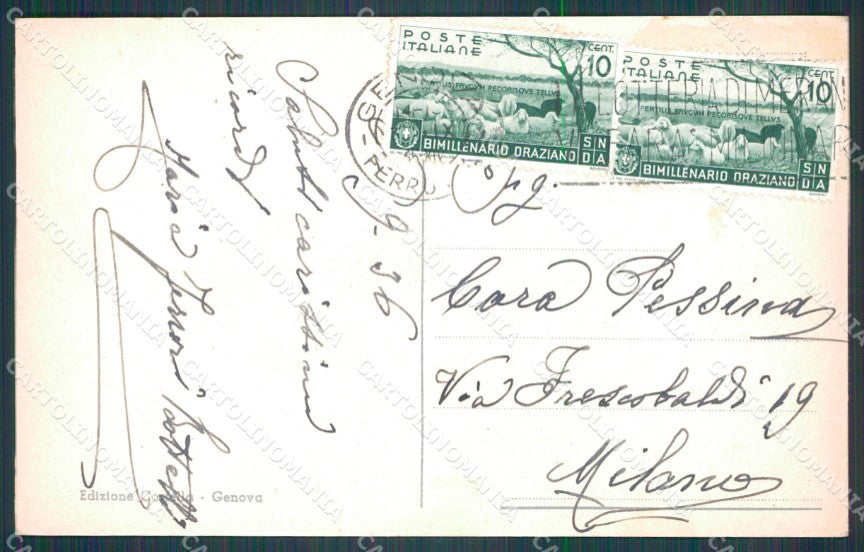 POSTE
ITALIANE
CENT.
10
FERTILIS FRUGUM PECORISQUE TELLUS
BIMILLENARIO ORAZIANO
S N
D A
POSTE
ITALIANE
CENT.
10
FERTILIS FRUGUM PECORISQUE TELLUS
BIMILLENARIO ORAZIANO
S N
D A
GENOVA
FERROV
LOTTERIA DI MERANO
9-36
Saluti carissimi
ricordi
Maria
Cara Pessina
Via Frescobaldi 19
Milano
Edizione - Genova
CARTOLINOMANIA